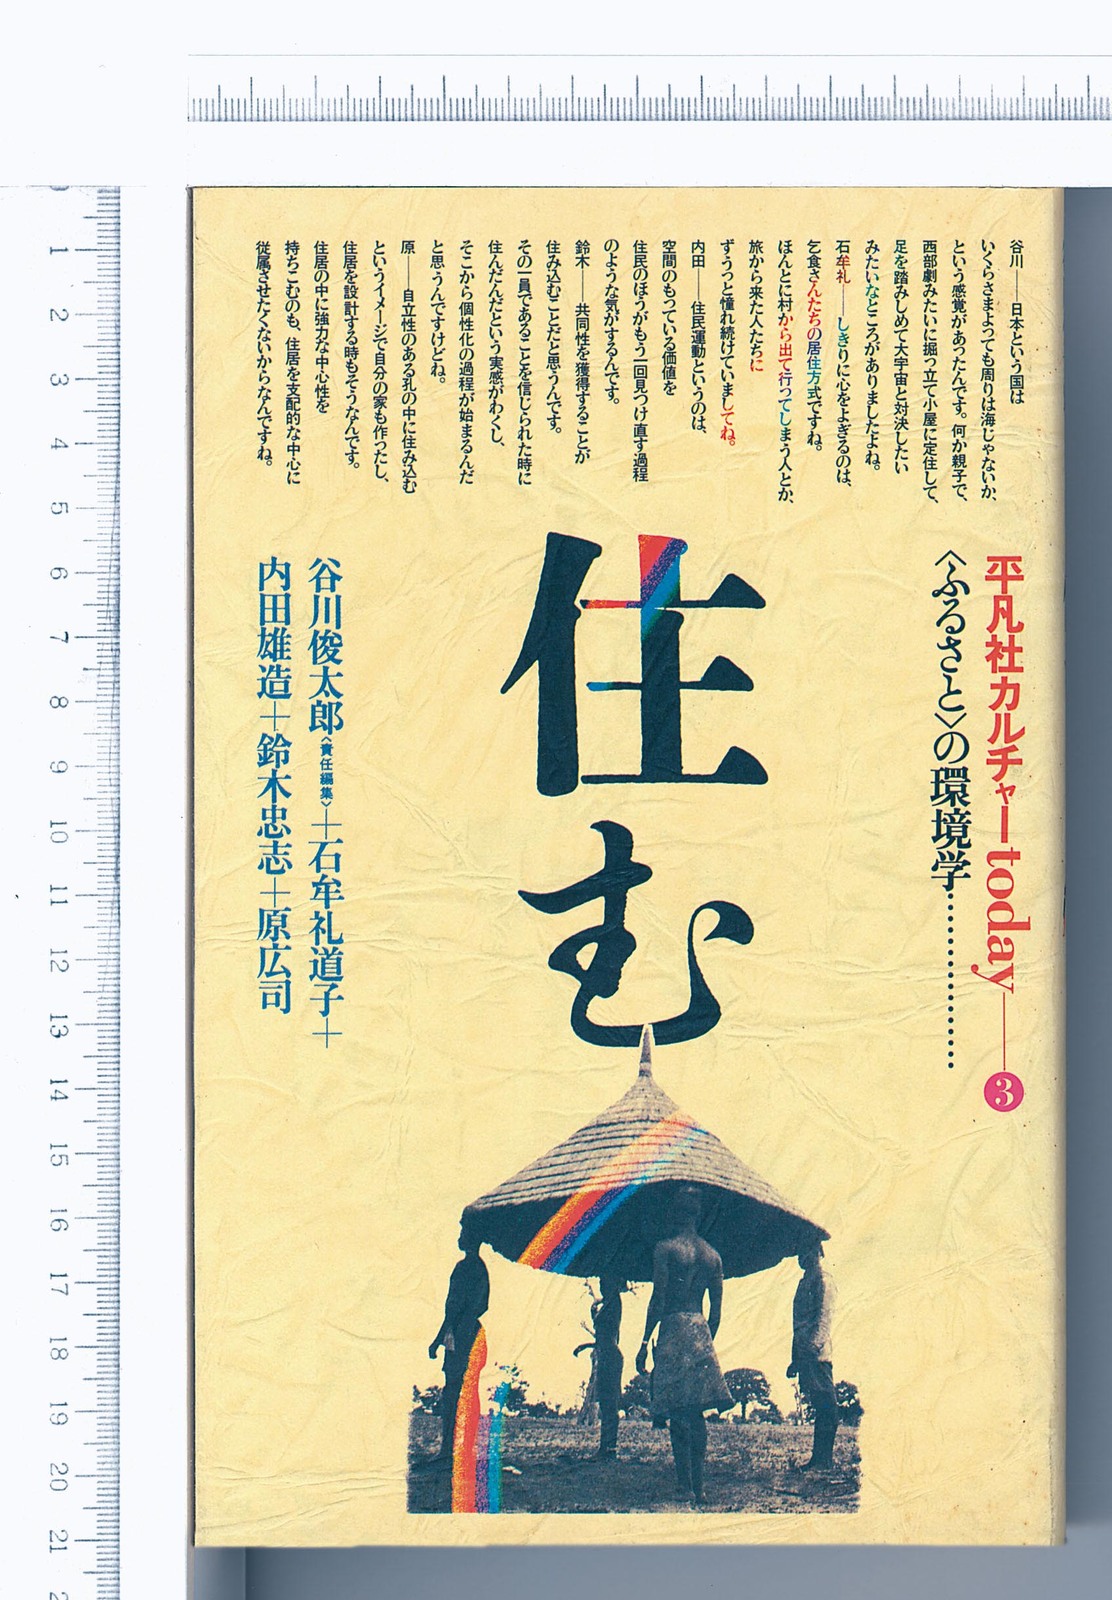 谷川――日本という国は
いくらさまよっても周りは海じゃないか、
という感覚があったんです。何か親子で、
西部劇みたいに掘っ立て小屋に定住して、
足を踏みしめて大宇宙と対決したい
みたいなところがありましたよね。
石牟礼――しきりに心をよぎるのは、
乞食さんたちの居住方式ですね。
ほんとに村から出て行ってしまう人とか、
旅から来た人たちに
ずうっと憧れ続けていましてね。
内田――住民運動というのは、
空間のもっている価値を
住民のほうがもう一回見つけ直す過程
のような気がするんです。
鈴木――共同性を獲得することが
住み込むことだと思うんです。
その一員であることを信じられた時に
住んだんだという実感がわくし、
そこから個性化の過程が始まるんだ
と思うんですけどね。
原――自立性のある孔の中に住み込む
というイメージで自分の家も作ったし、
住居を設計する時もそうなんです。
住居の中に強力な中心性を
持ちこむのも、住居を支配的な中心に
従属させたくないからなんですね。
平凡社カルチャーtoday――3
〈ふるさと〉の環境学………………
住む
谷川俊太郎〈責任編集〉+石牟礼道子+
内田雄造+鈴木忠志+原広司
1
2
3
4
5
6
7
8
9
10
11
12
13
14
15
16
17
18
19
20
21